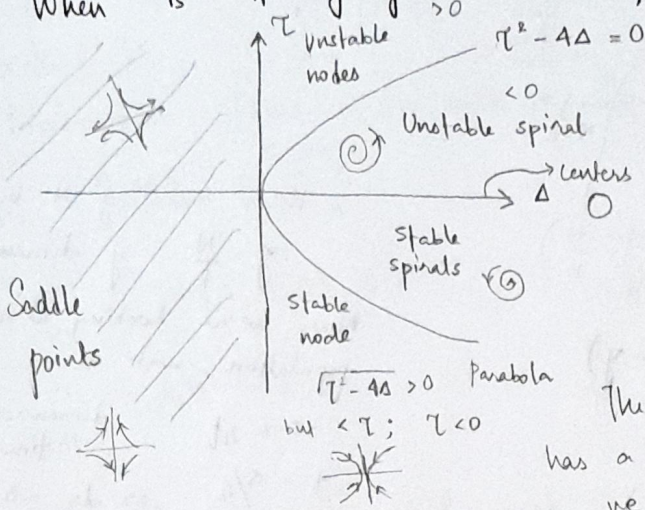 When is
> 0
τ
Unstable
nodes
τ² - 4Δ = 0
< 0
Unstable spiral
centers
Δ
Stable
spirals
Saddle
points
Stable
node
√τ² - 4Δ > 0
but < τ ; τ < 0
Parabola
The
has a
we